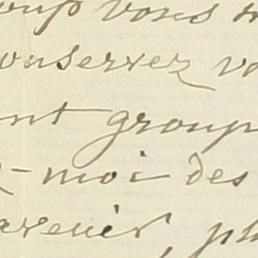 oup vous
onservez vo
ent group
z-moi des
avenir, pl